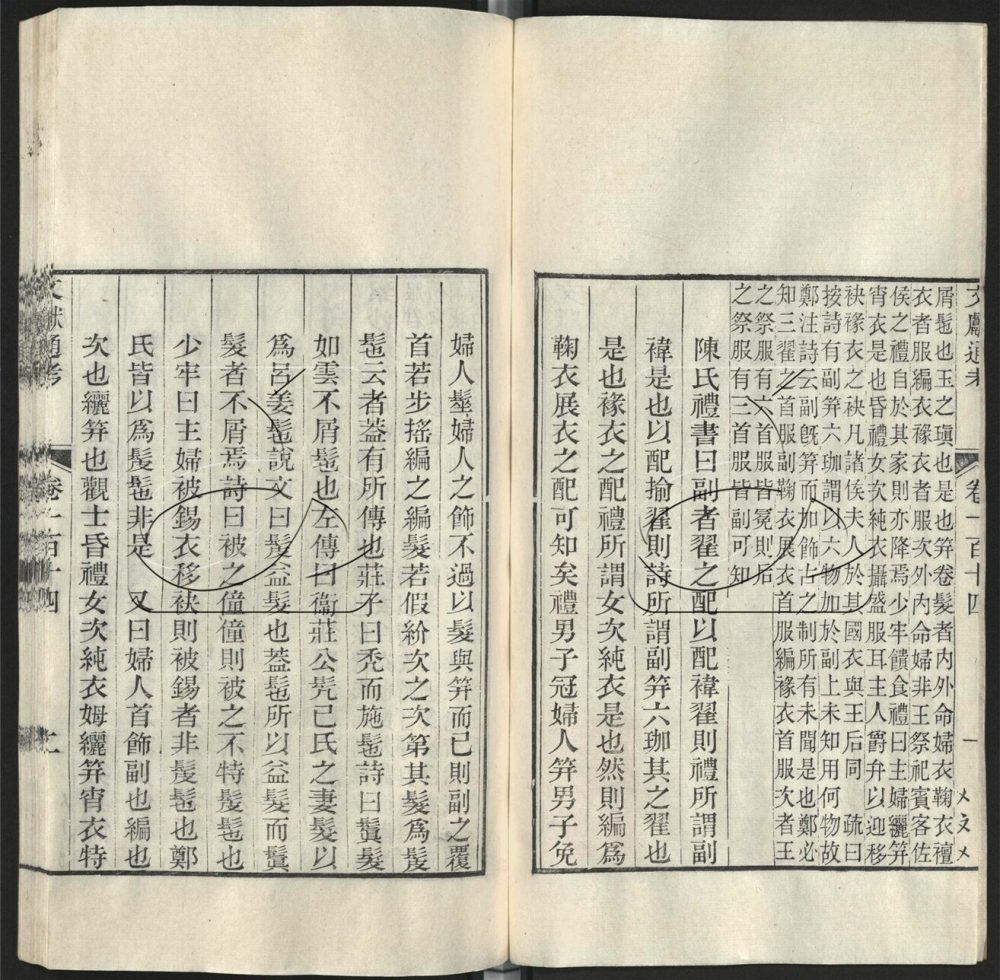 文獻通考 卷一百十四 一
屑髢也玉之瑱也是也笄卷髮者內外命婦衣鞠衣襢
衣者服編衣褖衣者服次外內命婦非王祭祀賓客佐
侯之禮自於其家則亦降焉少牢饋食禮曰主婦纚笄
宵衣是也昏禮女次純衣攝盛服耳主人爵弁以迎移
袂褖衣之袂凡諸侯夫人於其國衣與王后同 疏曰
按詩有副笄六珈謂以六物加於副上未知用何物故
鄭注詩云副旣笄而加飾古之制所有未聞是也鄭必
知三翟之首服副鞠衣展衣首服編褖衣首服次者王
之祭服有六首服皆冕則后
之祭服有三首服皆副可知
陳氏禮書曰副者翟之配以配褘翟則禮所謂副
褘是也以配揄翟則詩所謂副笄六珈其之翟也
鞠衣展衣之配可知矣禮男子冠婦人笄男子免
是也褖衣之配禮所謂女次純衣是也然則編爲
婦人髽婦人之飾不過以髮與笄而已則副之覆
首若步搖編之編髮若假紒次之次第其髮爲髲
髢云者蓋有所傳也莊子曰禿而施髢詩曰鬒髮
如雲不屑髢也左傳曰衞莊公髡己氏之妻髮以
爲呂姜髢說文曰髲益髮也蓋髢所以益髮而鬒
髮者不屑焉詩曰被之僮僮則被之不特髲髢也
少牢曰主婦被錫衣移袂則被錫者非髲髢也鄭
氏皆以爲髲髢非是 又曰婦人首飾副也編也
次也纚笄也觀士昏禮女次純衣姆纚笄宵衣特
文獻通考 卷一百十四